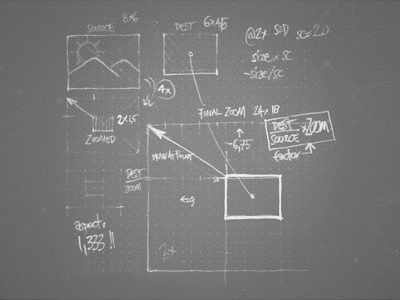 SOURCE
8x6
DEST
6x4.5
@2x
SC=2.0
size x sc
-size/sc
4x
ZOOMED
2x1.5
FINAL ZOOM 24x18
-6,75
DEST
SOURCE
x ZOOM
factor
DRAW AT POINT
DEST
ZOOM
←9
aspect:
1,333 !!
3x